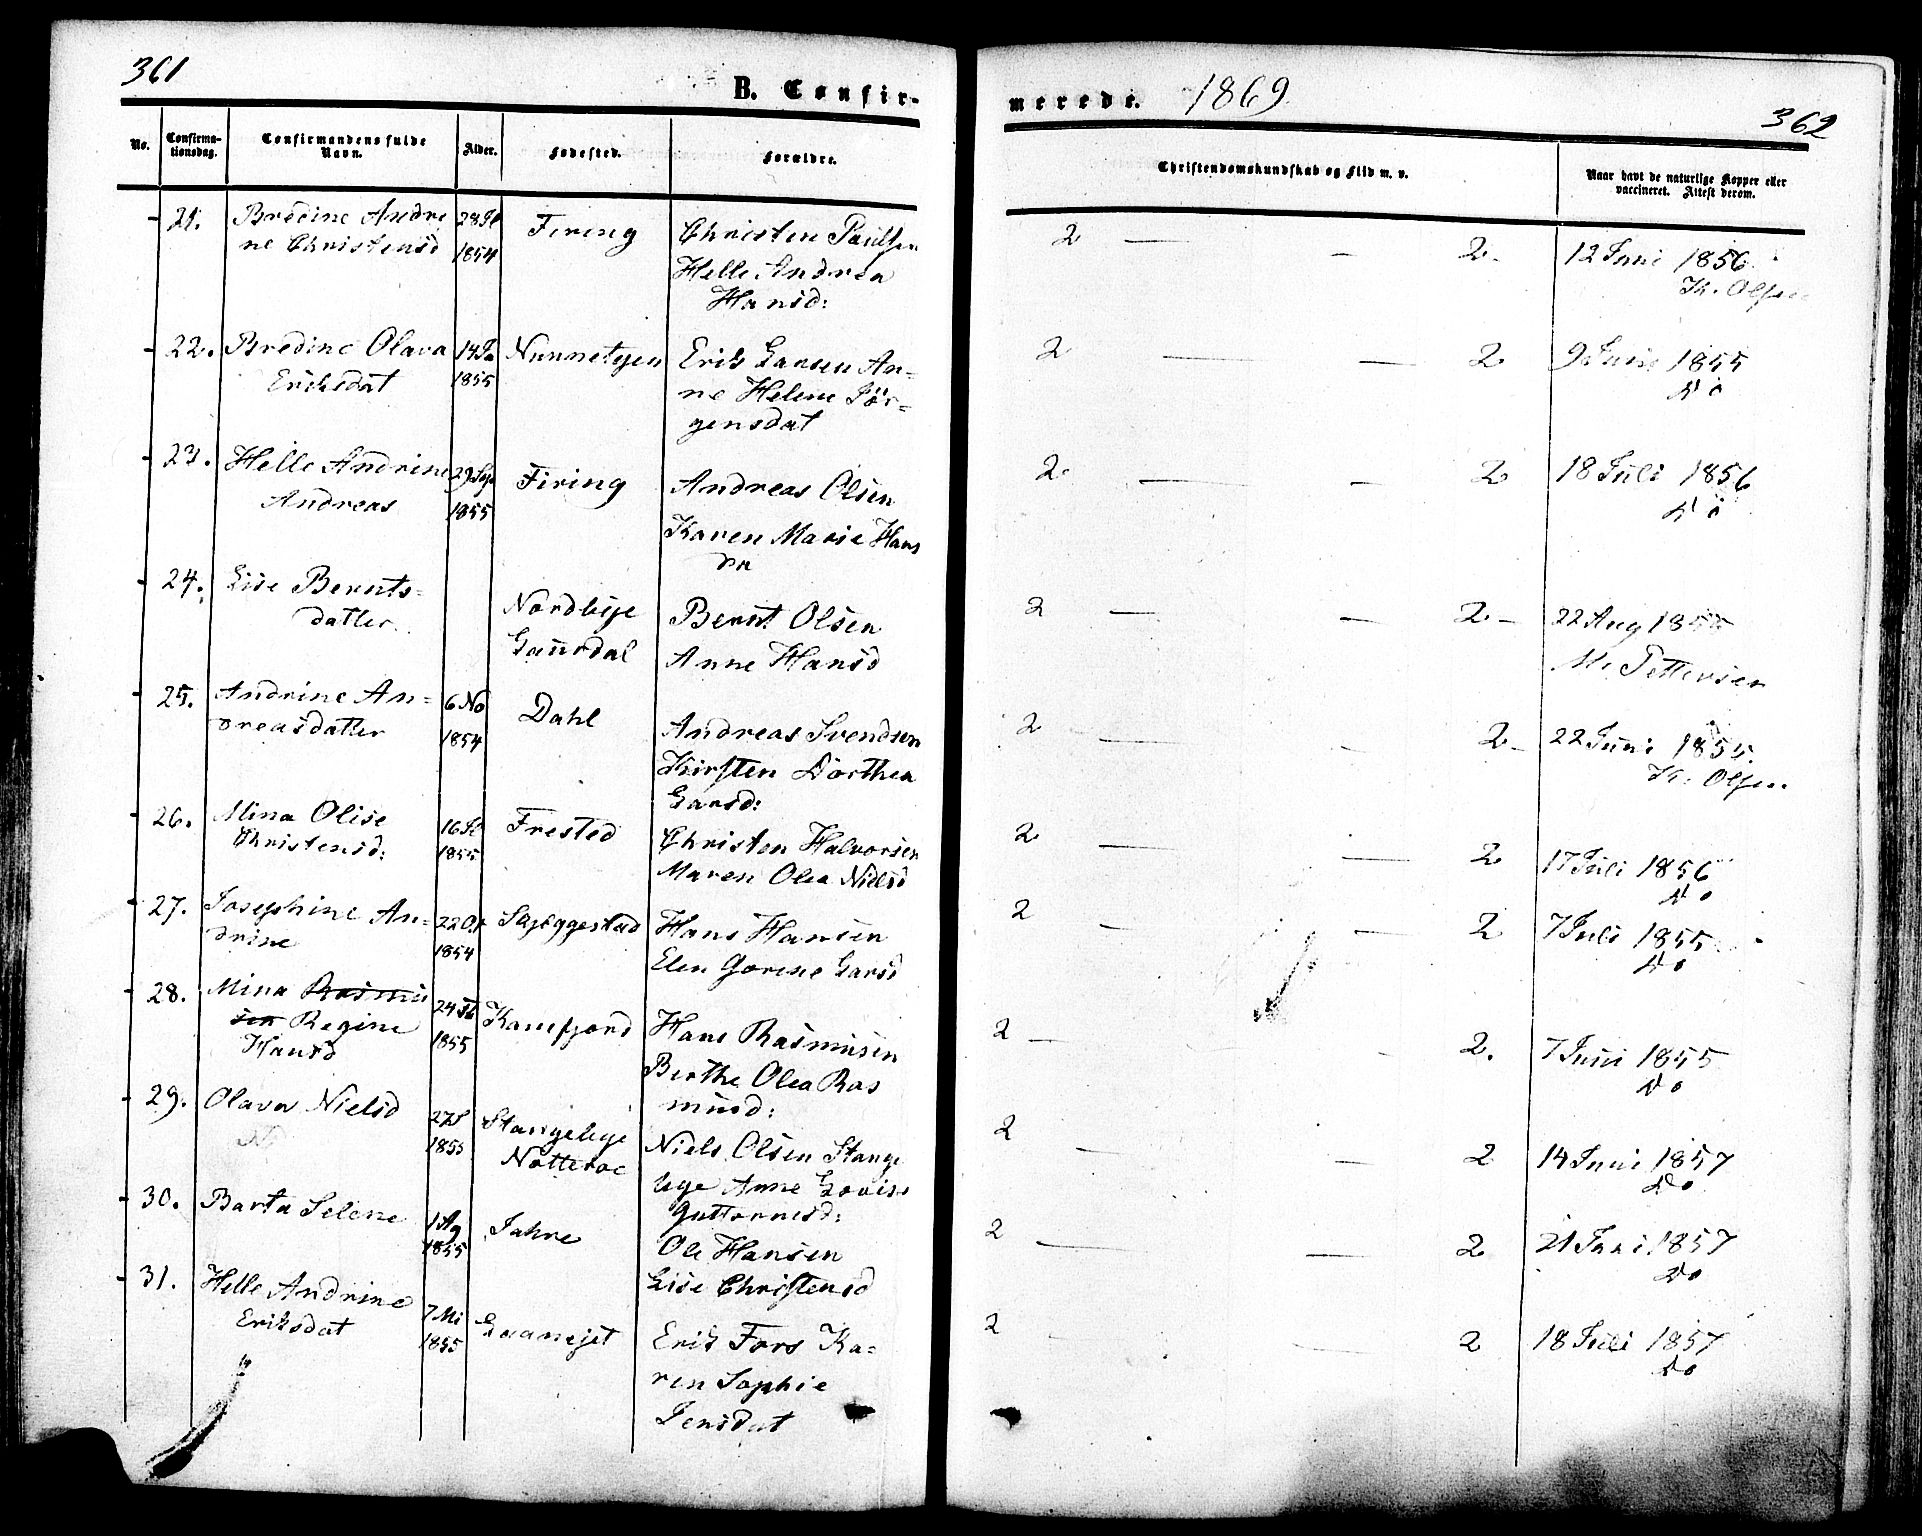 361
B. Confir-
merede. 1869
362
No.
Confirma-
tionsdag.
Confirmandens fulde
Navn.
Alder.
Fødested.
Forældre.
Christendomskundskab og Flid m. v.
Naar havt de naturlige Kopper eller
vaccineret. Attest derom.
21. Bredine Andri
ne Christensd
1854
Firing
Christen Paulsen
Helle Andrea
Hansd:
2 — — 2 -
12 Juni 1856
K. Olsen
22. Bredine Olava
Eriksdat
14 Ja
1855
Erik Larsen An-
ne Helene Jör-
gensdat
2 — — 2
9 Juni 1855
do
23. Helle Andrine
Andreas
29 Sep
1855
Firing
Andreas Olsen
Karen Marie Hans
2 — — 2
18 Juli 1856
do
24. Lise Bernts-
datter
Nordbye
Bernt Olsen
Anne Hansd
2 — — 2 -
22 Aug
M. Pettersen
25. Andrine An-
dreasdatter
6 No
1854
Dahl
Andreas Svendsen
Kirsten Dorthea
Larsd:
2 — — 2 -
22 Juni 1855.
K. Olsen
26. Mina Olise
Christensd:
1855
Frested
Christen Halvorsen
Maren Olea Nielsd
2 — — 2
17 Juli 1856
do
27. Josephine An-
drine
22 Oct
1854
Skjeggestad
Hans Hansen
Elen Gorine Larsd
2 — — 2
7 Juli 1855
do
28. Mina Rasmu
sen Regine
Hansd
1855
Hans Rasmusen
Berthe Olea Ras
musd:
2 — - 2.
7 Juni 1855
do
29. Olava Nielsd
1855
Stangebye
Nötteröe
Niels Olsen Stange
bye Anne Lovise
Guttormsd:
2 — — 2
14 Juni 1857
do
30. Barta Selene
1 Ag
1855
Jahre
Ole Hansen
Lise Christensd
2 — — 2
21 Juni 1857
do
31. Helle Andrine
Eriksdat
7 Mi
1855
Erik Fors Ka-
ren Sophie
Jensdat
2 — — 2
18 Juli 1857
do